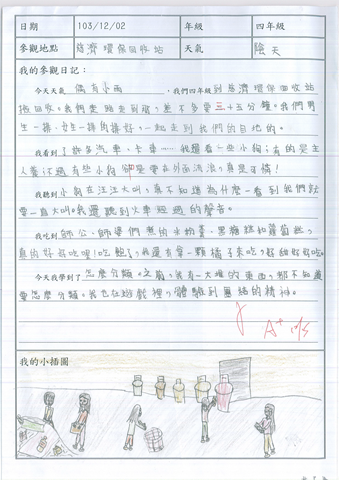 日期 103/12/02 年級 四年級
參觀地點 慈濟環保回收站 天氣 陰天
我的參觀日記：
今天天氣 偶有小雨 ，我們四年級到慈濟環保回收站
做回收。我們走路走到那，差不多要三十五分鐘。我們男
生一排、女生一排的排好，一起走到我們的目的地。
我看到了許多汽車、卡車……我還看一些小狗，有的完主
人養，不過有些小狗卻是要在外面流浪，真是可憐！
我聽到小狗在汪汪大叫，真不知道為什麼一看到我們就
要一直大叫。我還聽到火車經過的聲音。
我吃到師公、師婆們煮的米粉羹、黑糖糕和蘿蔔糕，
真的好好吃哩！吃飽了，我還有拿一顆橘子來吃，好甜好好吃。
今天我學到了怎麼分類。之前，我有一大堆的東西，都不知道
要怎麼分類。我也在遊戲裡，體驗到團結的精神。
A+
我的小插圖